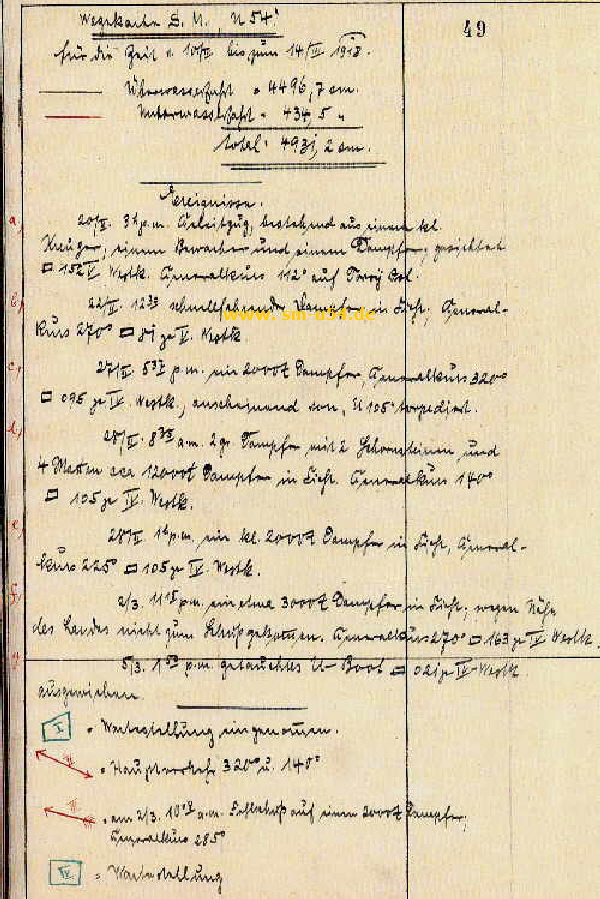 Wegekarte S. M. "U 54"
49
für die Zeit v. 10/II bis zum 14/III 1918.
Überwasserfahrt = 4496,7 sm.
Unterwasserfahrt = 434,5 "
total = 4931,2 sm.
Ereignisse.
a,
20/II. 3 h p.m. Geleitzug, bestehend aus einem kl.
Kreuzer, einem Bewacher und einem Dampfer, gesichtet
□ 152 Westk. Generalkurs 112° auf
b,
22/II. 12 schnellfahrender Dampfer in Sicht, General-
www.sm-u54.de
kurs 270° □ Westk.
c,
27/II. p.m. ein 2000 t Dampfer, Generalkurs 320°
□ 095 IV Westk., anscheinend von "U 105" torpediert.
d,
28/II. a.m. 2 gr. Dampfer mit 2 Schornsteinen und
4 Masten cca 12000 t Dampfer in Sicht. Generalkurs 140°
□ 105 IV. Westk.
e,
28/II. p.m. ein kl. 2000 t Dampfer in Sicht, General-
kurs 225° □ 105 IV. Westk.
f,
2/3. 11 p.m. ein etwa 3000 t Dampfer in Sicht; wegen Nähe
des Landes nicht zum Schuß gekommen. Generalkurs 270° □ 163 IV Westk.
g,
5/3. 1 p.m. getauchtes U-Boot □ 021 IV-Westk
ausgewichen.
I = Wartestellung eingenommen.
II = Hauptverkehr 320° u. 140°
III = am 2/3. 10 a.m. Fehlschuß auf einen 2000 t Dampfer,
Generalkurs 285°
IV. = Wartestellung